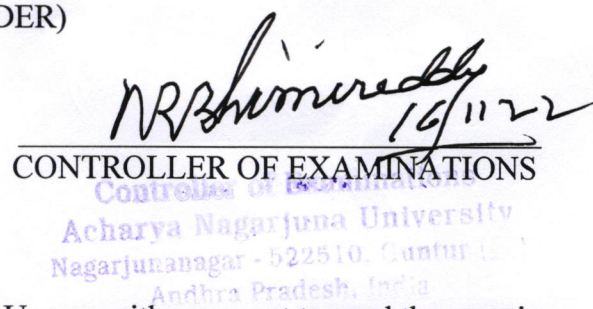 DER)
16/11 22
CONTROLLER OF EXAMINATIONS
Controller of Examinations
Acharya Nagarjuna University
Nagarjunanagar - 522510. Guntur
Andhra Pradesh, India